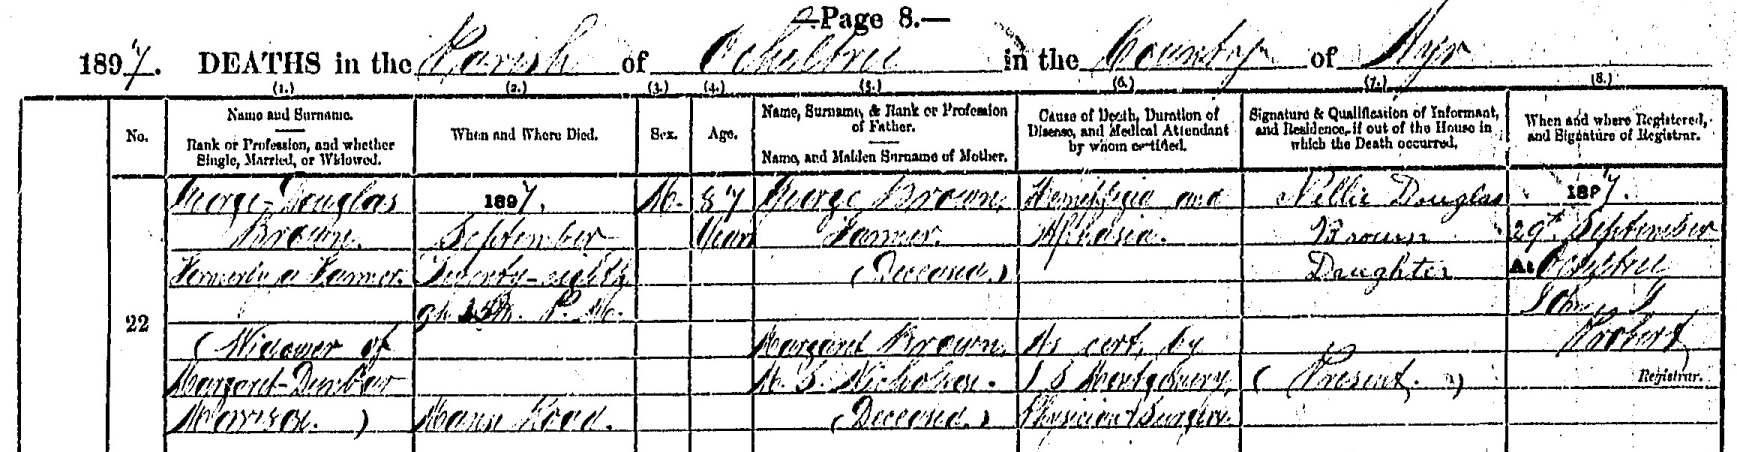 —Page 8.—
1897. DEATHS in the Parish of Ochiltree in the County of Ayr
(1.) (2.) (3.) (4.) (5.) (6.) (7.) (8.)
No.
Name and Surname.
Rank or Profession, and whether
Single, Married, or Widowed.
When and Where Died.
Sex.
Age.
Name, Surname, & Rank or Profession
of Father.
Name, and Maiden Surname of Mother.
Cause of Death, Duration of
Disease, and Medical Attendant
by whom certified.
Signature & Qualification of Informant,
and Residence, if out of the House in
which the Death occurred.
When and where Registered,
and Signature of Registrar.
22
George Douglas
Brown
Formerly a Farmer.
(Widower of
Margaret Dunbar
Morrison.)
1897.
September
Twenty-eighth
P. M.
Road.
M.
87
Years
George Brown,
Farmer.
(Deceased.)
Margaret Brown,
M. S. Nicholson.
(Deceased.)
Hemiplegia and
Aphasia.
As cert. by
Montgomery,
Physician & Surgeon
Nellie Douglas
Brown
Daughter
(Present.)
1897.
29th September
At Ochiltree
Registrar.